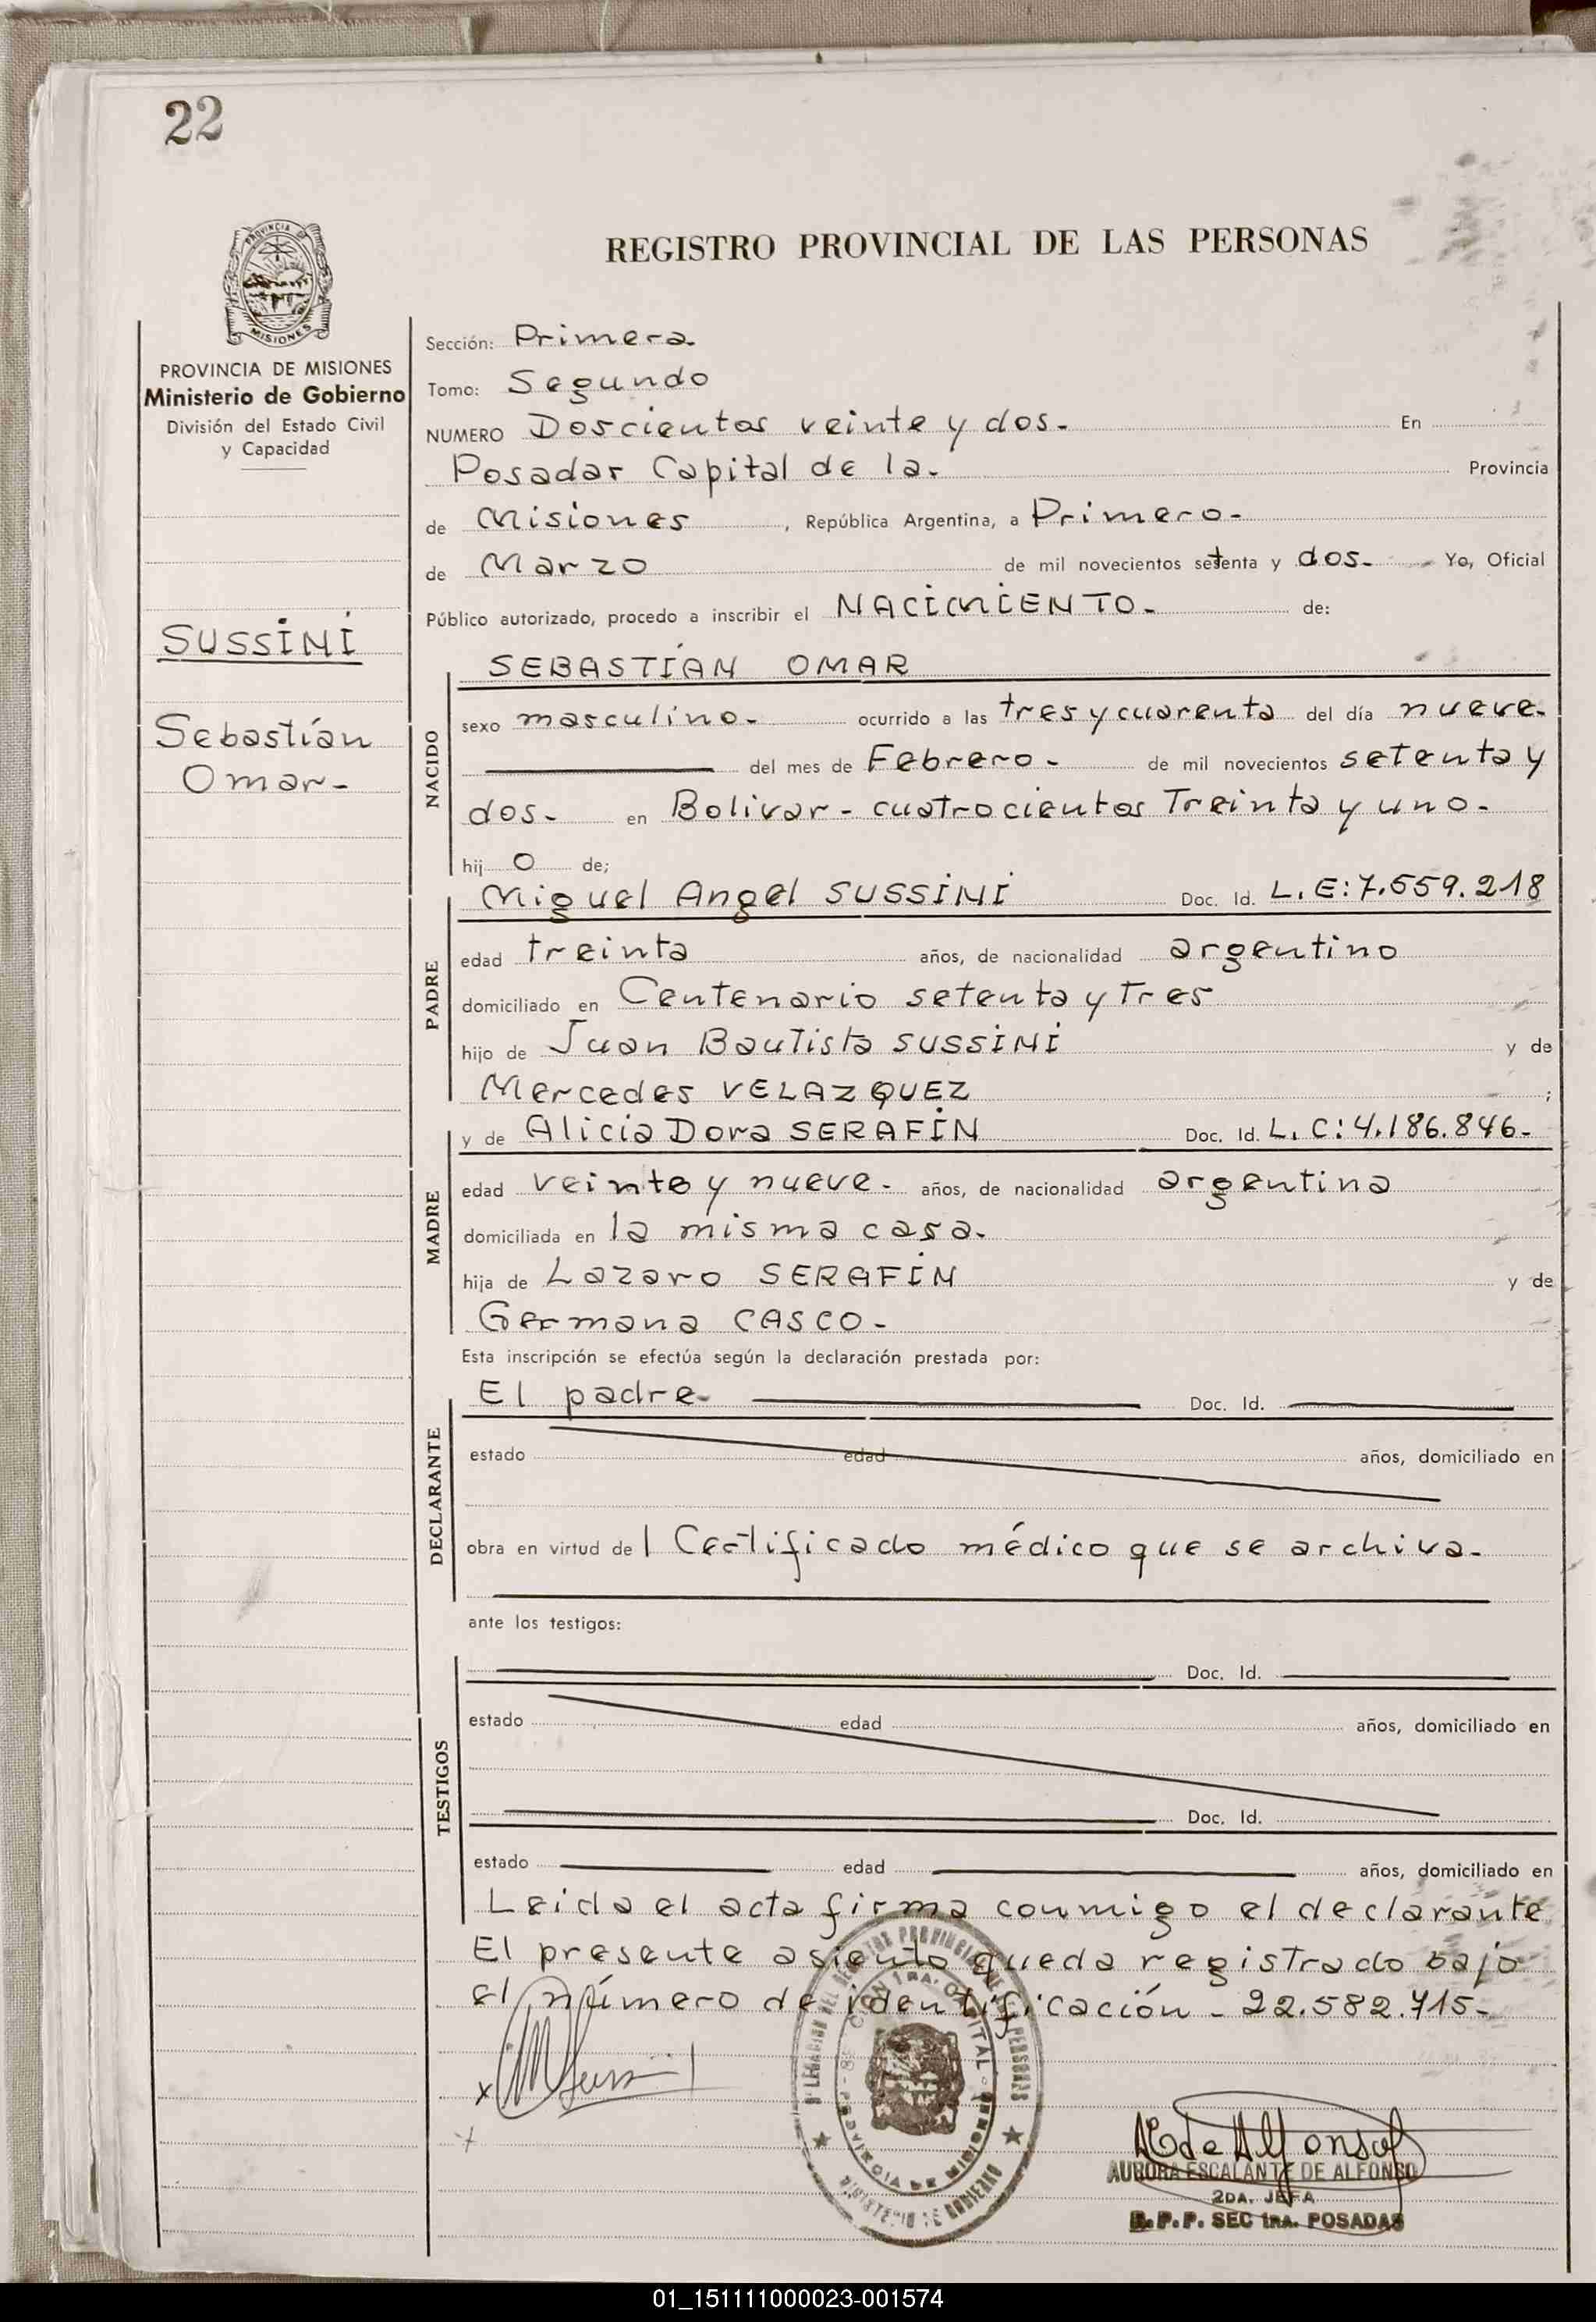 22
PROVINCIA
MISIONES
PROVINCIA DE MISIONES
Ministerio de Gobierno
División del Estado Civil
y Capacidad
SUSSINI
Sebastían
Omar-
REGISTRO PROVINCIAL DE LAS PERSONAS
Sección: Primera
Tomo: Segundo
NUMERO Doscientos veinte y dos. En
Posadas Capital de la. Provincia
de Misiones, República Argentina, a Primero-
de Marzo de mil novecientos setenta y dos. Yo, Oficial
Público autorizado, procedo a inscribir el NACIMIENTO. de:
NACIDO
SEBASTÍAN OMAR
sexo masculino. ocurrido a las tres y cuarenta del día nueve.
del mes de Febrero. de mil novecientos setenta y
dos. en Bolivar - cuatrocientos Treinta y uno.
hij o de;
PADRE
Miguel Angel SUSSINI Doc. Id. L.E: 7.559.218
edad treinta años, de nacionalidad argentino
domiciliado en Centenario setenta y Tres
hijo de Juan Bautista SUSSINI y de
Mercedes VELAZQUEZ ;
MADRE
y de Alicia Dora SERAFÍN Doc. Id. L.C: 4.186.846-
edad veinte y nueve. años, de nacionalidad argentina
domiciliada en la misma casa.
hija de Lazaro SERAFÍN y de
Germana CASCO-
Esta inscripción se efectúa según la declaración prestada por:
DECLARANTE
El padre- Doc. Id.
estado edad años, domiciliado en
obra en virtud de l Certificado médico que se archiva.
ante los testigos:
TESTIGOS
Doc. Id.
estado edad años, domiciliado en
Doc. Id.
estado edad años, domiciliado en
Leida el acta firma conmigo el declarante
El presente asiento queda registrado bajo
el número de identificación - 22.582.715-
PROVINCIA DE MISIONES
MINISTERIO DE GOBIERNO
x
A E de Alfonso
AURORA ESCALANTE DE ALFONSO
2DA. JEFA
R.P.P. SEC 1RA. POSADAS
01_151111000023-001574